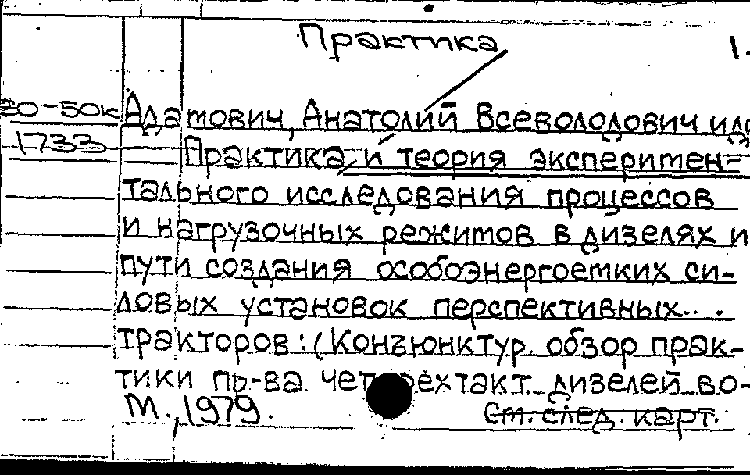 Практика
1.
80-50к Адамович, Анатолий Всеволодович и др
1733 Практика и теория эксперимен=
тального исследования процессов
и нагрузочных режимов в дизелях и
пути создания особоэнергоемких си-
ловых установок перспективных..
тракторов: (Конъюнктур. обзор прак-
тики пр-ва четырёхтакт. дизелей во-
М., 1979. См. след. карт.